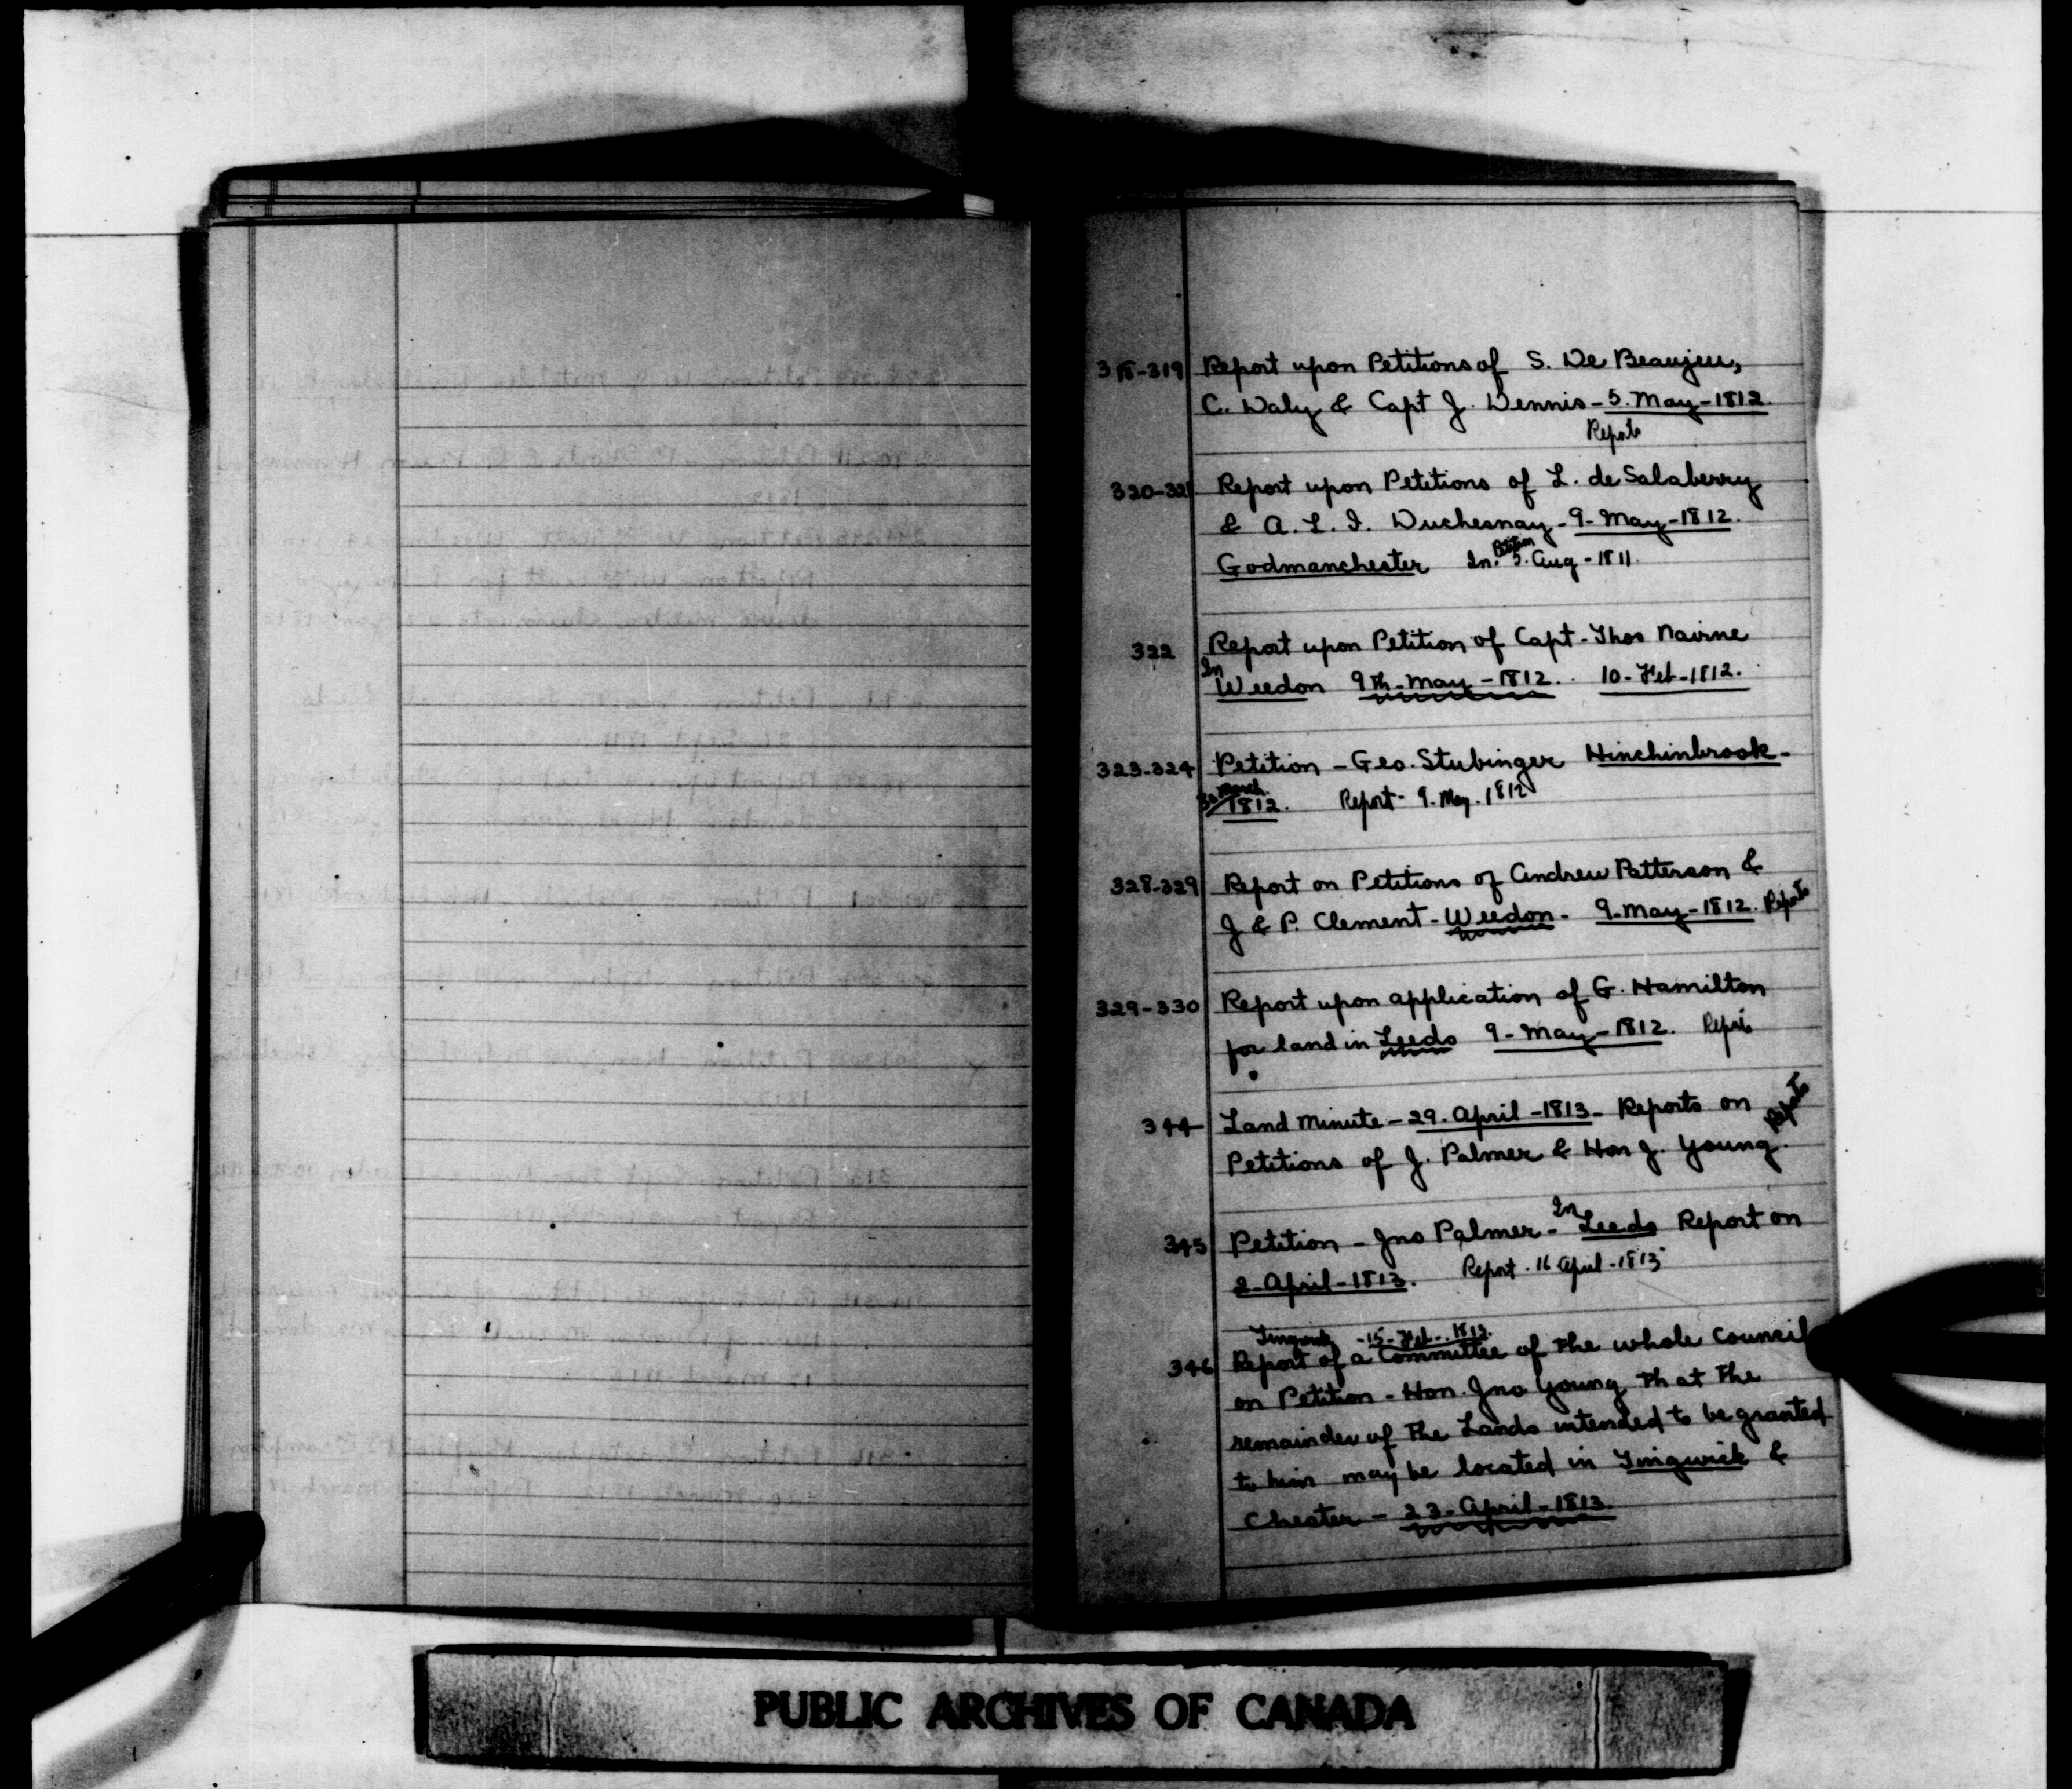 318-319 Report upon Petitions of S. De Beaujeu,
C. Daly & Capt J. Dennis - 5. May - 1812.
Reports
320-321 Report upon Petitions of L. de Salaberry
& A. L. I. Duchesnay - 9 - May - 1812.
Petition
Godmanchester In. 5. Aug - 1811.
322 Report upon Petition of Capt - Thos Nairne
In
Weedon 9th - May - 1812. 10 - Feb - 1812.
323-324 Petition - Geo. Stubinger Hinchinbrook -
March.
1812. Report - 9. May. 1812
328-329 Report on Petitions of Andrew Patterson &
J & P. Clement - Weedon - 9 - May - 1812. Reports
329-330 Report upon application of G. Hamilton
for land in Leeds 9 - May - 1812. Report
344 Land Minute - 29. April - 1813 - Reports on
Petitions of J. Palmer & Hon J. Young. Reports
In
345 Petition - Jno Palmer - Leeds Report on
2 - April - 1813. Report. 16 April - 1813
Tingwick - 15 - Feb - 1812.
346 Report of a Committee of the whole Council
on Petition - Hon. Jno Young that the
remainder of the Lands intended to be granted
to him may be located in Tingwick &
Chester - 23 - April - 1813.
PUBLIC ARCHIVES OF CANADA